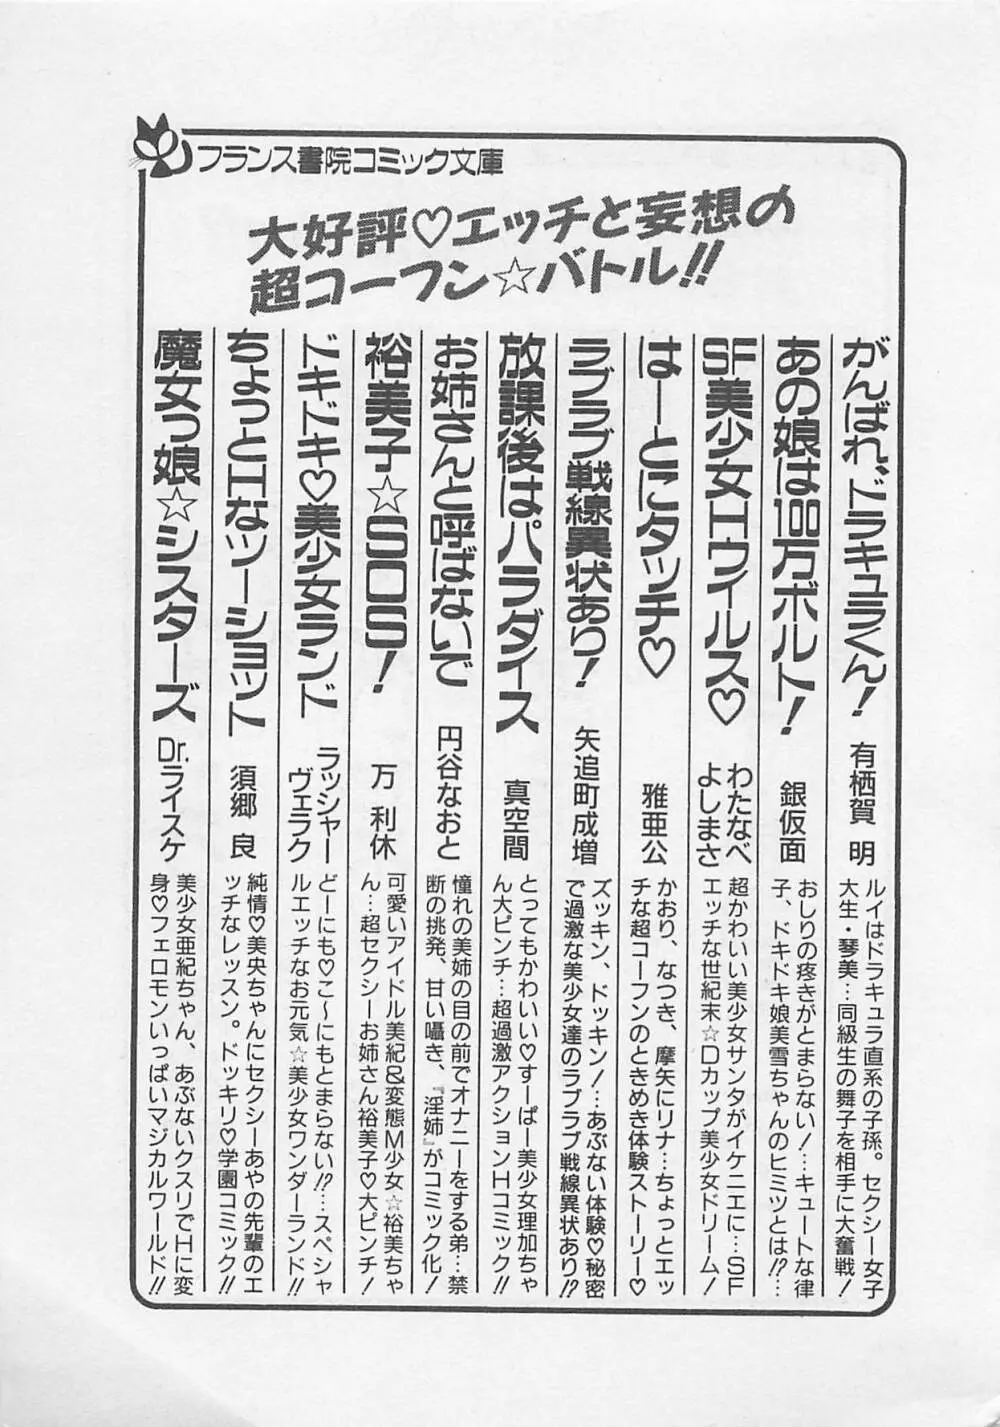 フランス書院コミック文庫
大好評♡エッチと妄想の
超コーフン☆バトル!!
がんばれ、ドラキュラくん！
有栖賀 明
ルイはドラキュラ直系の子孫。セクシー女子
大生・琴美…同級生の舞子を相手に大奮戦！
あの娘は100万ボルト！
銀仮面
おしりの疼きがとまらない！…キュートな律
子、ドキドキ娘美雪ちゃんのヒミツとは!?…
SF美少女Hウイルス♡
わたなべ
よしまさ
超かわいい美少女サンタがイケニエに…SF
エッチな世紀末☆Dカップ美少女ドリーム！
はーとにタッチ♡
雅亜公
かおり、なつき、摩矢にリナ…ちょっとエッ
チな超コーフンのときめき体験ストーリー♡
ラブラブ戦線異状あり！
矢追町成増
ズッキン、ドッキン！…あぶない体験♡秘密
で過激な美少女達のラブラブ戦線異状あり!?
放課後はパラダイス
真空間
とってもかわいい♡すーぱー美少女理加ちゃ
ん大ピンチ…超過激アクションHコミック!!
お姉さんと呼ばないで
円谷なおと
憧れの美姉の目の前でオナニーをする弟…禁
断の挑発、甘い囁き、『淫姉』がコミック化！
裕美子☆SOS！
万 利休
可愛いアイドル美紀&変態M少女☆裕美ちゃ
ん…超セクシーお姉さん裕美子♡大ピンチ！
ドキドキ♡美少女ランド
ラッシャー
ヴェラク
どーにも♡こ〜にもとまらない!?…スペシャ
ルエッチなお元気☆美少女ワンダーランド!!
ちょっとHなツーショット
須郷 良
純情♡美央ちゃんにセクシーあやの先輩のエ
ッチなレッスン。ドッキリ♡学園コミック!!
魔女っ娘☆シスターズ
Dr.ライスケ
美少女亜紀ちゃん、あぶないクスリでHに変
身♡フェロモンいっぱいマジカルワールド!!